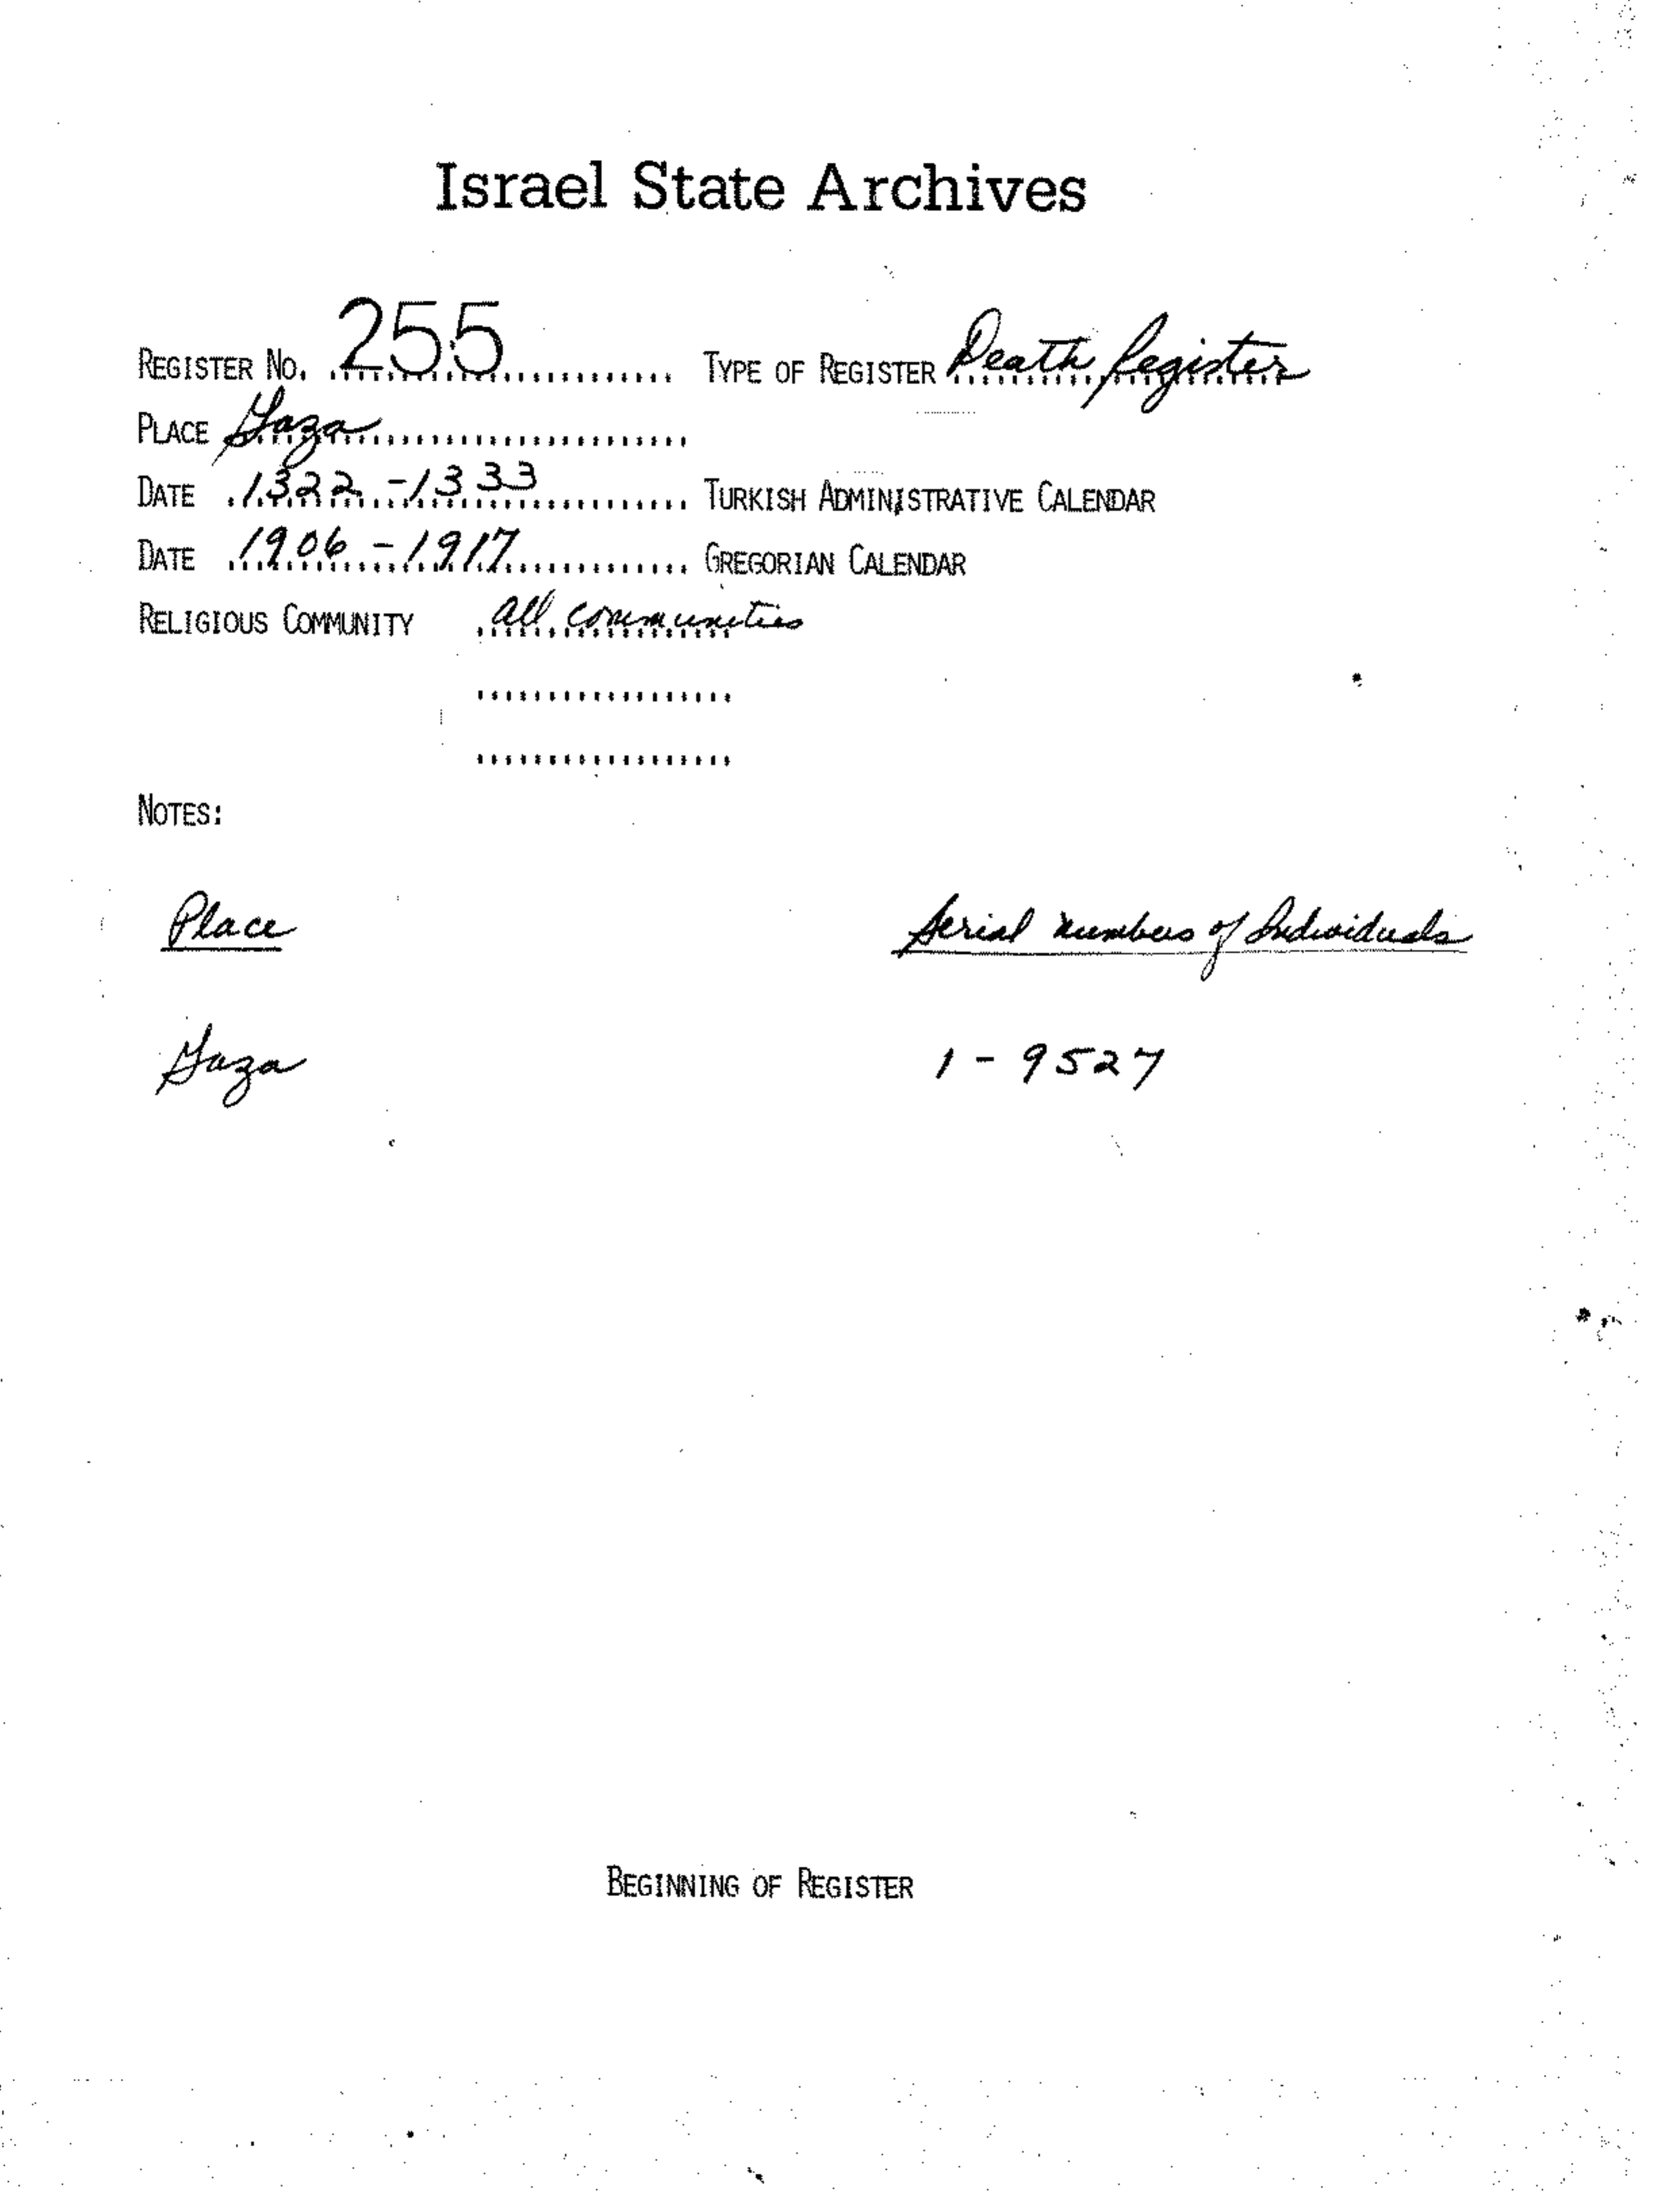 Israel State Archives
REGISTER NO. 255 TYPE OF REGISTER Death Register
PLACE Gaza
DATE 1322-1333 TURKISH ADMINISTRATIVE CALENDAR
DATE 1906-1917 GREGORIAN CALENDAR
RELIGIOUS COMMUNITY all communities
NOTES:
Place Serial numbers of Individuals
Gaza 1 - 9527
BEGINNING OF REGISTER